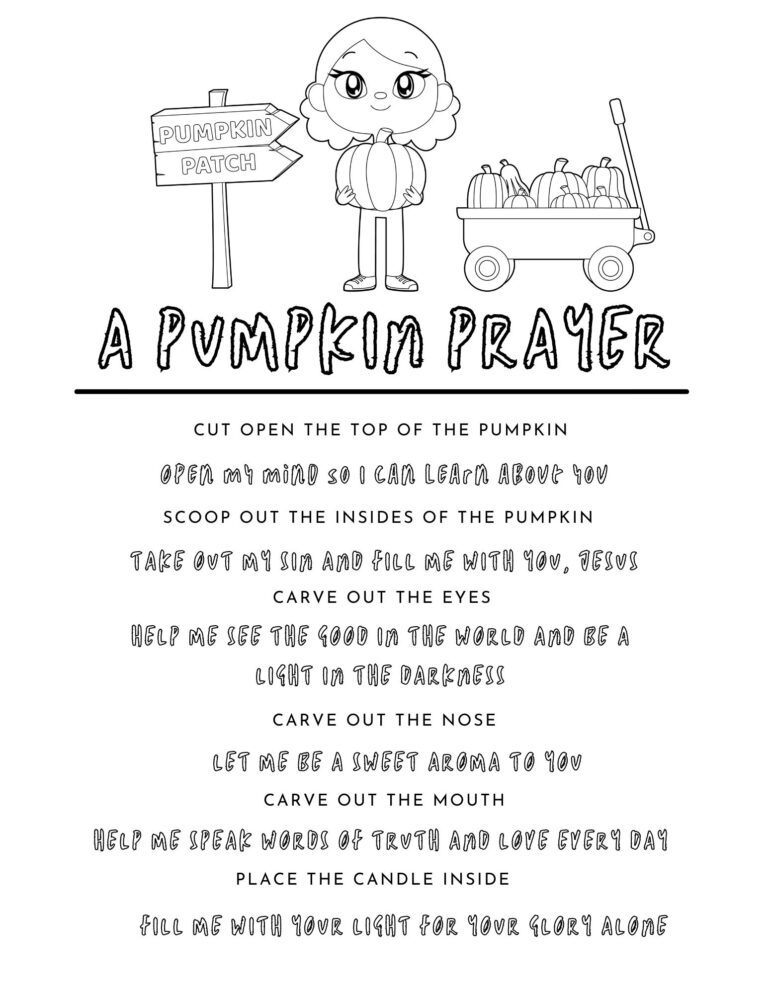 PUMPKIN
PATCH
A PUMPKIN PRAYER
CUT OPEN THE TOP OF THE PUMPKIN
OPEN MY MIND SO I CAN LEARN ABOUT YOU
SCOOP OUT THE INSIDES OF THE PUMPKIN
TAKE OUT MY SIN AND FILL ME WITH YOU, JESUS
CARVE OUT THE EYES
HELP ME SEE THE GOOD IN THE WORLD AND BE A
LIGHT IN THE DARKNESS
CARVE OUT THE NOSE
LET ME BE A SWEET AROMA TO YOU
CARVE OUT THE MOUTH
HELP ME SPEAK WORDS OF TRUTH AND LOVE EVERY DAY
PLACE THE CANDLE INSIDE
FILL ME WITH YOUR LIGHT FOR YOUR GLORY ALONE